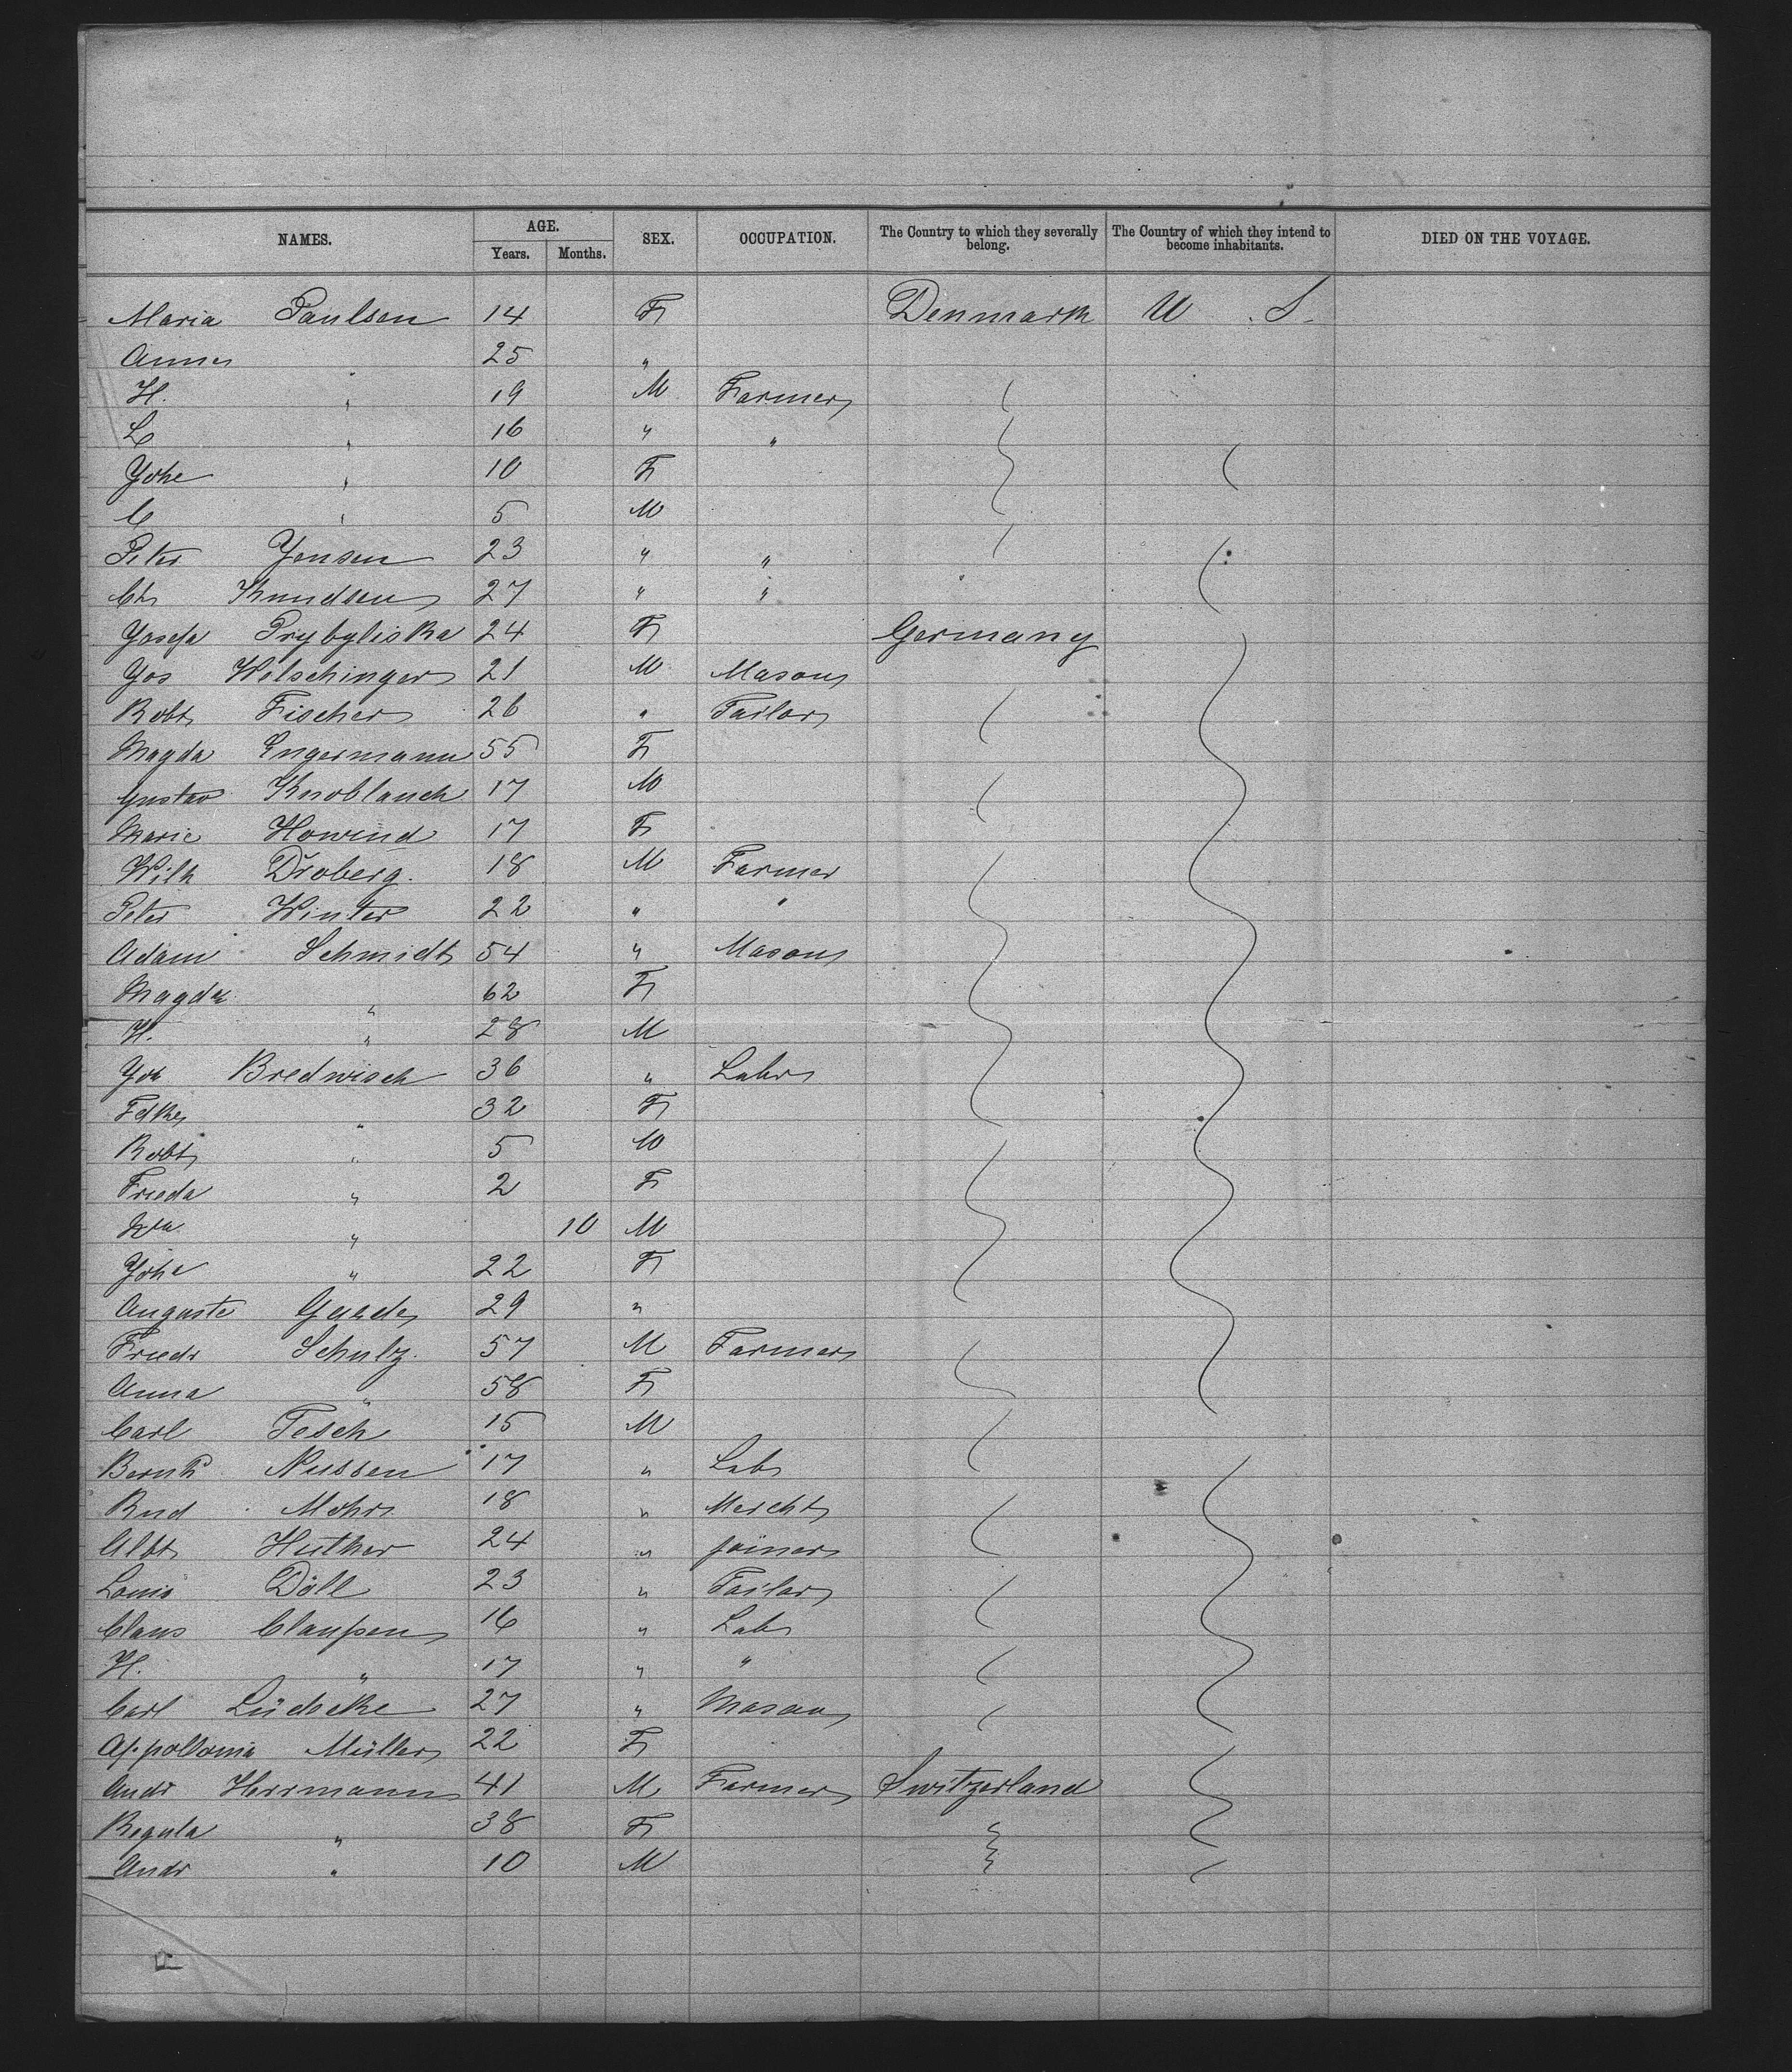 NAMES. AGE. SEX. OCCUPATION. The Country to which they severally belong. The Country of which they intend to become inhabitants. DIED ON THE VOYAGE.
Years. Months.
Maria Paulsen 14 F Denmark U. S.
Anna 25 "
H. " 19 M Farmer
L " 16 " "
Yohe " 10 F
C " 5 M
Peter Yensen 23 " "
Ch Knudsen 27 " "
Yosefa Prybyliska 24 F Germany
Yos Welschinger 21 M Mason
Robt Fischer 26 " Tailor
Magda Engermann 55 F
Gustav Knoblauch 17 M
Marie Howind 17 F
Wilh Droberg. 18 M Farmer
Peter Winter 22 " "
Adam Schmidt 54 " Mason
Magda " 62 F
H. " 28 M
Yoh Bredwisch 36 " Labr
" 32 F
Robt " 5 M
Frieda " 2 F
" 10 M
Yohe " 22 F
Auguste 29 "
Friedr Schulz. 57 M Farmer
Anna " 58 F
Carl Tesch 15 M
Bernh Nussen 17 " Lab
Rud Mohr 18 " Mercht
Albt Huther 24 " joiner
Louis Döll 23 " Tailor
Claus Claussen 16 " Lab
H. " 17 " "
Carl Lüdecke 27 " Mason
Appollonia Müller 22 F
Andr Herrmann 41 M Farmer Switzerland
Regula " 38 F
Andr " 10 M